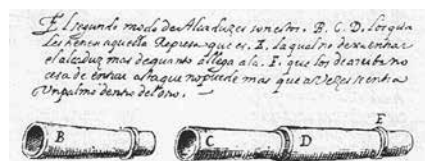 El segundo modo de Alcaduzes son estos. B. C. D. los qua
les tienen aquella Represa que es. E. la qual no dexa entrar
el alcaduz mas de quanto allega a la. F. que los de arriba no
cesa de entrar asta que no puede mas que a vezes s entra
un palmo dentro del otro.
B C D E